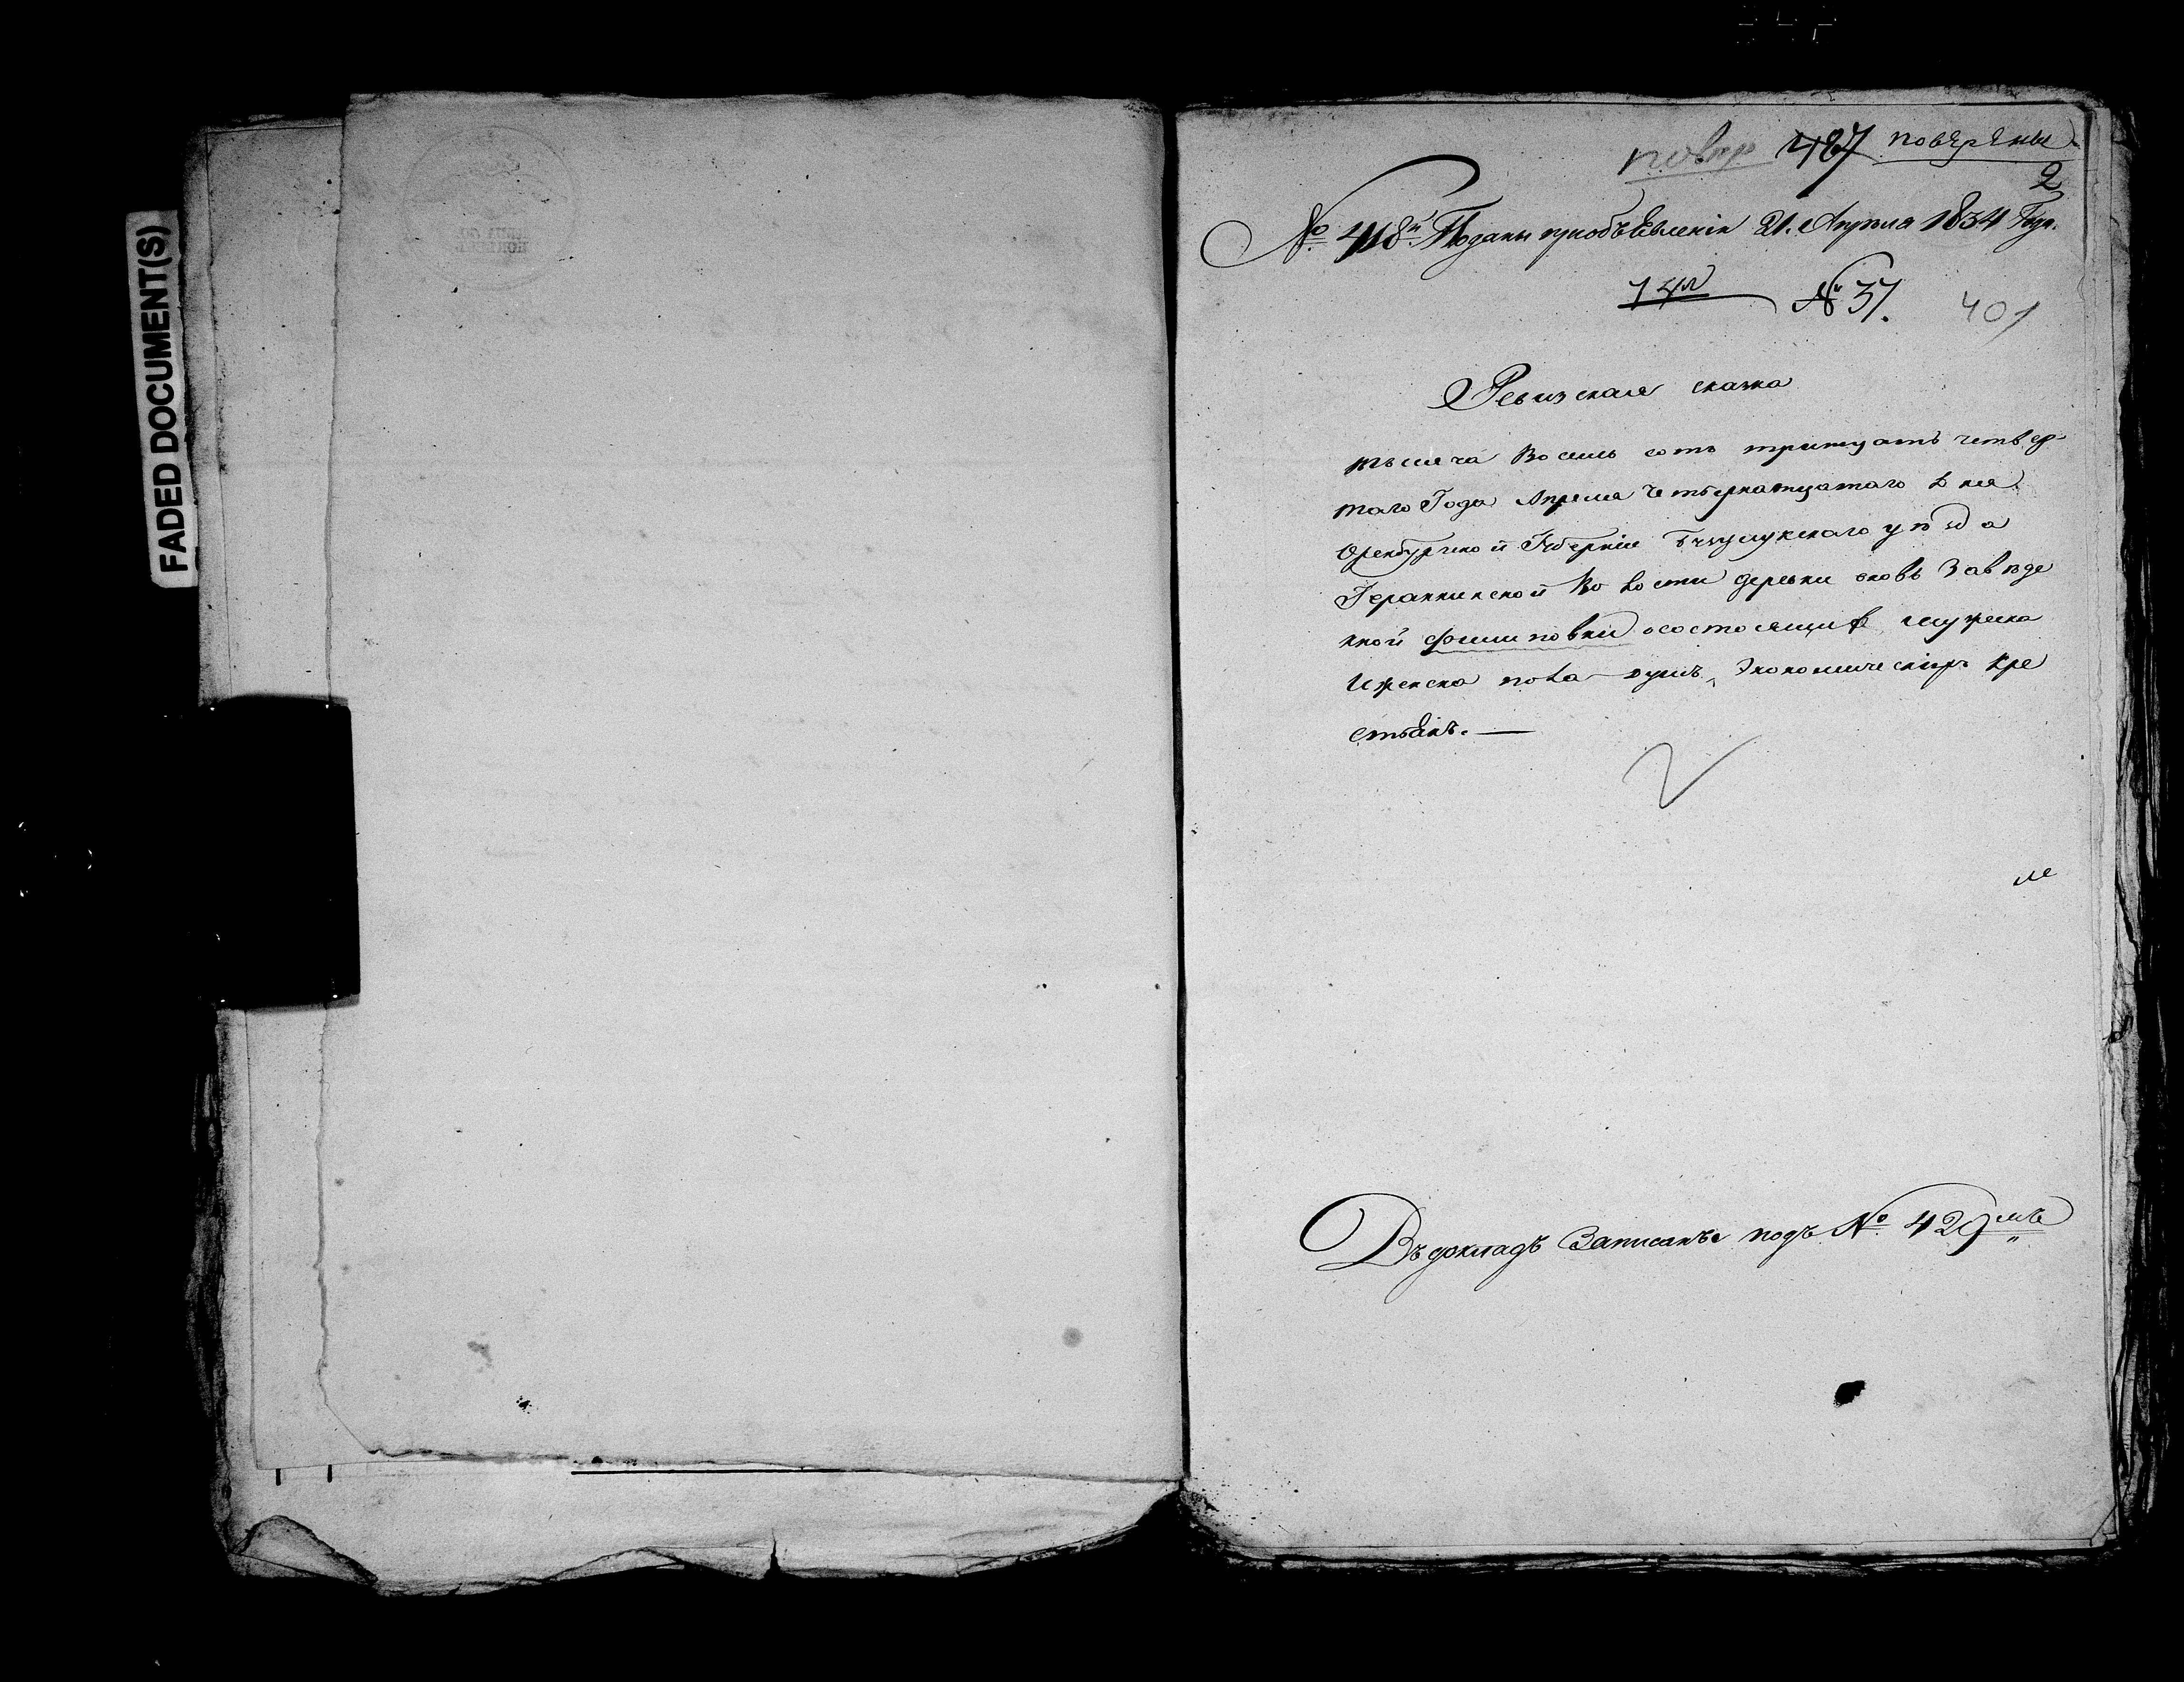 FADED DOCUMENT(S)
повер 487 повѣрены
2
№ 418й Поданы приобъявленіи 21. Апреля 1834 Года.
14 № 37. 401
Ревизская сказка
тысеча восемь сотъ тритцать четвер
таго Года Апреля четырнатцатаго дня
Оренбургской Губерніи Бузулукскаго уѣзда
Геранкинской волости деревни вновь Заведе
нной Филиповки осостоящихъ мужеска
Иженска пола душъ, Экономическихъ кре
стьянъ. —
ме
Въ докладъ Записанъ подъ № 429мъ